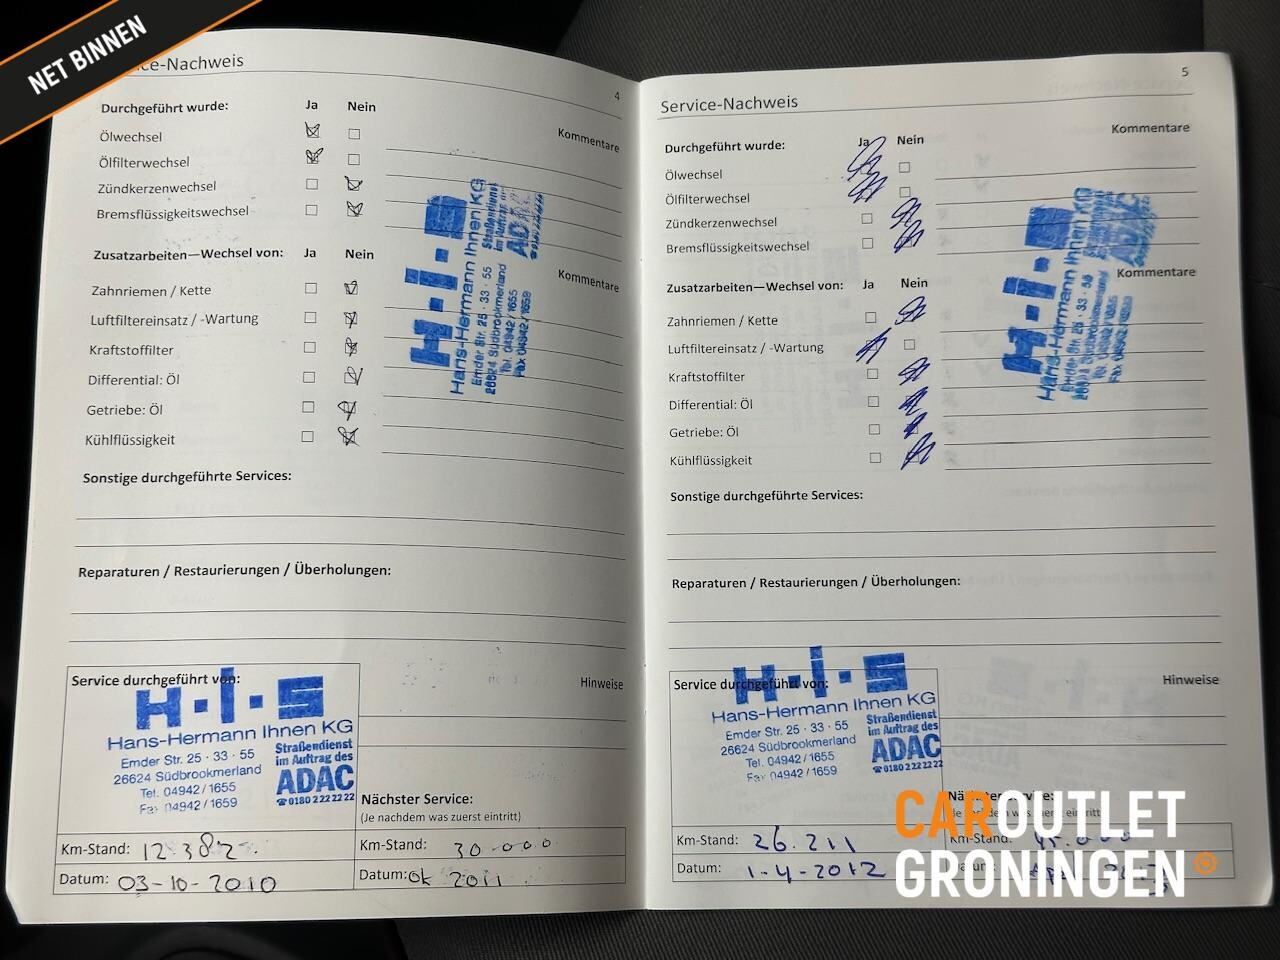 NET BINNEN
ce-Nachweis
4
Durchgeführt wurde: Ja Nein
Kommentare
Ölwechsel
Ölfilterwechsel
Zündkerzenwechsel
Bremsflüssigkeitswechsel
Zusatzarbeiten—Wechsel von: Ja Nein
Kommentare
Zahnriemen / Kette
Luftfiltereinsatz / -Wartung
Kraftstoffilter
Differential: Öl
Getriebe: Öl
Kühlflüssigkeit
H·I·S
Hans-Hermann Ihnen KG
Emder Str. 25 · 33 · 55
26624 Südbrookmerland
Tel. 04942/1655
Fax 04942/1659
Straßendienst
im Auftrag des
Sonstige durchgeführte Services:
Reparaturen / Restaurierungen / Überholungen:
Service durchgeführt von:
Hinweise
H·I·S
Hans-Hermann Ihnen KG
Emder Str. 25 · 33 · 55
26624 Südbrookmerland
Tel. 04942/1655
Fax 04942/1659
Straßendienst
im Auftrag des
ADAC
☎0180 2 22 22 22
Nächster Service:
(Je nachdem was zuerst eintritt)
Km-Stand: 12.382
Km-Stand: 30.000
Datum: 03-10-2010
Datum: ok 2011
5
Service-Nachweis
Kommentare
Durchgeführt wurde: Ja Nein
Ölwechsel
Ölfilterwechsel
Zündkerzenwechsel
Bremsflüssigkeitswechsel
Zusatzarbeiten—Wechsel von: Ja Nein
Kommentare
Zahnriemen / Kette
Luftfiltereinsatz / -Wartung
Kraftstoffilter
Differential: Öl
Getriebe: Öl
Kühlflüssigkeit
H·I·S
Hans-Hermann Ihnen KG
Emder Str. 25 · 33 · 55
Sonstige durchgeführte Services:
Reparaturen / Restaurierungen / Überholungen:
Service durchgeführt von:
Hinweise
H·I·S
Hans-Hermann Ihnen KG
Emder Str. 25 · 33 · 55
26624 Südbrookmerland
Tel. 04942/1655
Fax 04942/1659
Straßendienst
im Auftrag des
ADAC
☎0180 2 22 22 22
Nächster Service:
Km-Stand: 26.211
Km-Stand:
Datum: 1-4-2012
CAROUTLET
GRONINGEN